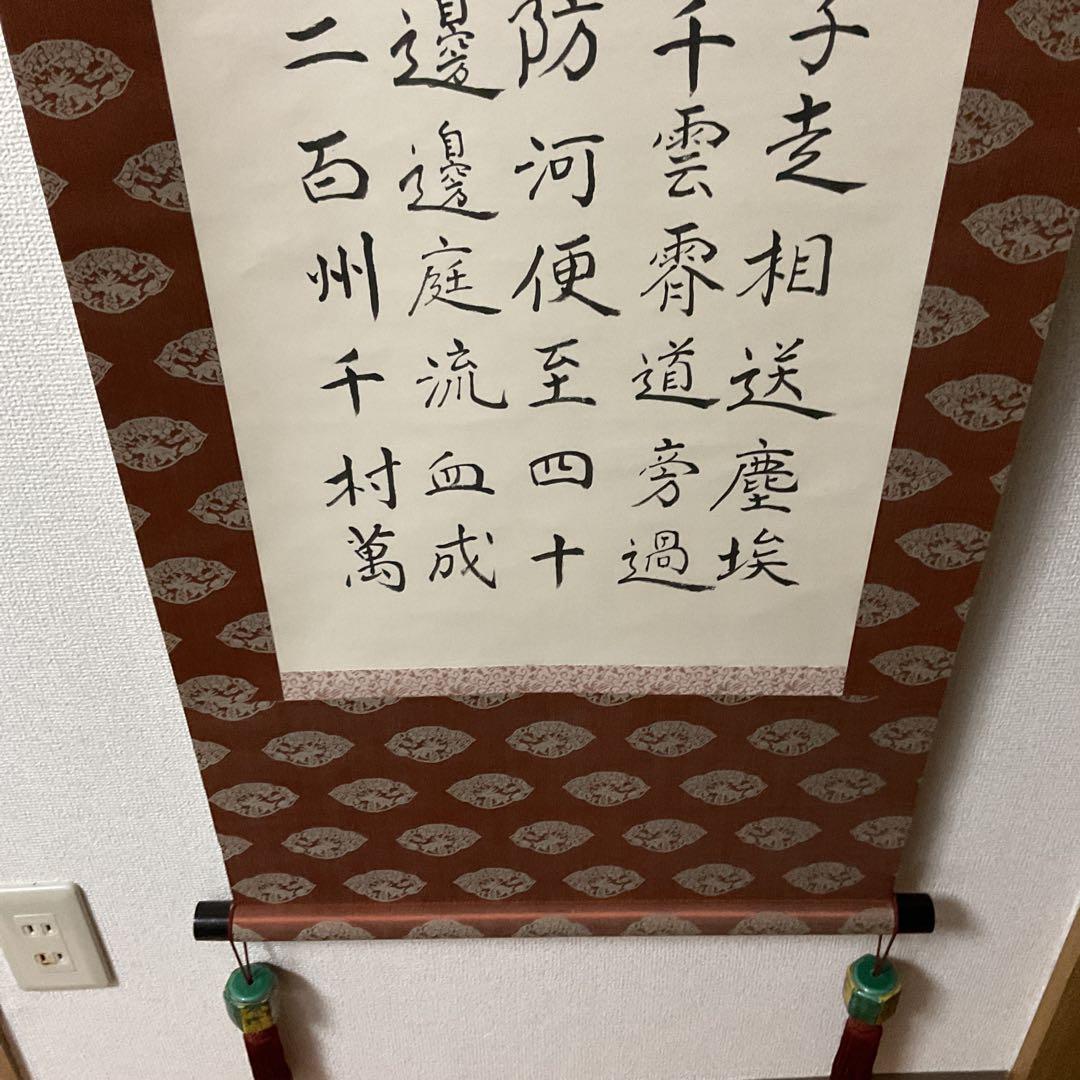 子走相送塵埃
千雲霄道旁過
防河便至四十
邊邊庭流血成
二百州千村萬